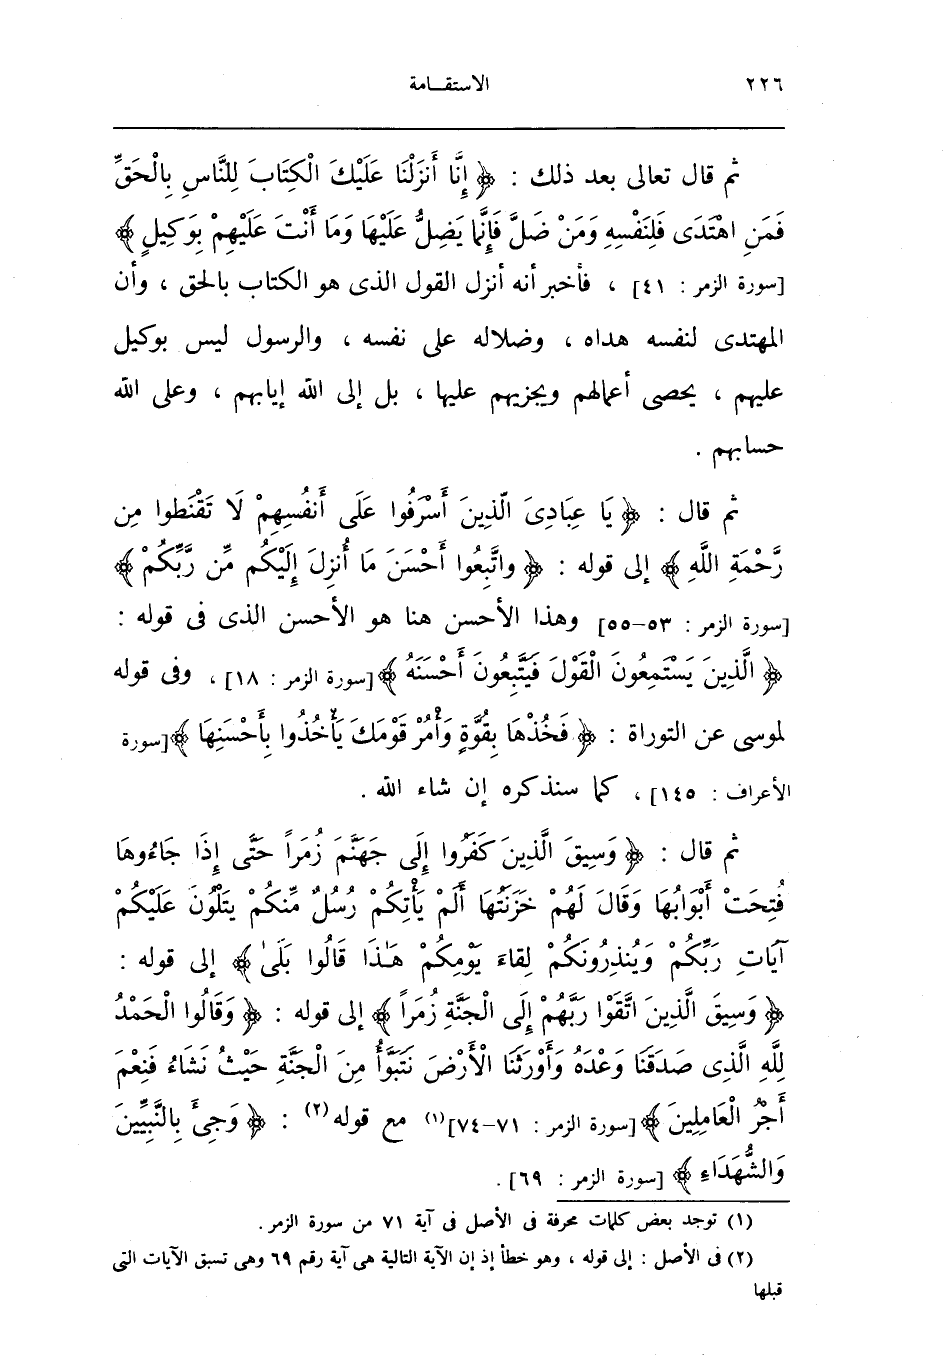 ٢٢٦
الاستقـامة
ثم قال تعالى بعد ذلك : ﴿ إِنَّا أَنزَلْنَا عَلَيْكَ الْكِتَابَ لِلنَّاسِ بِالْحَقِّ
فَمَنِ اهْتَدَى فَلِنَفْسِهِ وَمَنْ ضَلَّ فَإِنَّمَا يَضِلُّ عَلَيْهَا وَمَا أَنْتَ عَلَيْهِمْ بِوَكِيلٍ ﴾
[سورة الزمر : ٤١] ، فأخبر أنه أنزل القول الذى هو الكتاب بالحق ، وأن
المهتدى لنفسه هداه ، وضلاله على نفسه ، والرسول ليس بوكيل
عليهم ، يحصى أعمالهم ويجزيهم عليها ، بل إلى الله إيابهم ، وعلى الله
حسابهم .
ثم قال : ﴿ يَا عِبَادِىَ الَّذِينَ أَسْرَفُوا عَلَى أَنفُسِهِمْ لَا تَقْنَطوا مِن
رَّحْمَةِ اللَّهِ ﴾ إلى قوله : ﴿ واتَّبِعُوا أَحْسَنَ مَا أُنزِلَ إِلَيْكُم مِّن رَّبِّكُمْ ﴾
[سورة الزمر : ٥٣-٥٥] وهذا الأحسن هنا هو الأحسن الذى فى قوله :
﴿ الَّذِينَ يَسْتَمِعُونَ الْقَوْلَ فَيَتَّبِعُونَ أَحْسَنَهُ ﴾ [سورة الزمر : ١٨] ، وفى قوله
لموسى عن التوراة : ﴿ فَخُذْهَا بِقُوَّةٍ وَأْمُرْ قَوْمَكَ يَأْخُذُوا بِأَحْسَنِهَا ﴾ [سورة
الأعراف : ١٤٥] ، كما سنذكره إن شاء الله .
ثم قال : ﴿ وَسِيقَ الَّذِينَ كَفَرُوا إِلَى جَهَنَّمَ زُمَراً حَتَّى إِذَا جَاءُوهَا
فُتِحَتْ أَبْوَابُهَا وَقَالَ لَهُمْ خَزَنَتُهَا أَلَمْ يَأْتِكُمْ رُسُلٌ مِّنكُمْ يَتْلُونَ عَلَيْكُمْ
آيَاتِ رَبِّكُمْ وَيُنذِرُونَكُمْ لِقَاءَ يَوْمِكُمْ هَـٰذَا قَالُوا بَلَىٰ ﴾ إلى قوله :
﴿ وَسِيقَ الَّذِينَ اتَّقَوْا رَبَّهُمْ إِلَى الْجَنَّةِ زُمَراً ﴾ إلى قوله : ﴿ وَقَالُوا الْحَمْدُ
لِلَّهِ الَّذِى صَدَقَنَا وَعْدَهُ وَأَوْرَثَنَا الْأَرْضَ نَتَبَوَّأُ مِنَ الْجَنَّةِ حَيْثُ نَشَاءُ فَنِعْمَ
أَجْرُ الْعَامِلِينَ ﴾ [سورة الزمر : ٧١-٧٤](١) مع قوله(٢) : ﴿ وَجِىءَ بِالنَّبِيِّينَ
وَالشُّهَدَاءِ ﴾ [سورة الزمر : ٦٩] .
(١) توجد بعض كلمات محرفة فى الأصل فى آية ٧١ من سورة الزمر .
(٢) فى الأصل : إلى قوله ، وهو خطأ إذ إن الآية التالية هى آية رقم ٦٩ وهى تسبق الآيات التى
قبلها